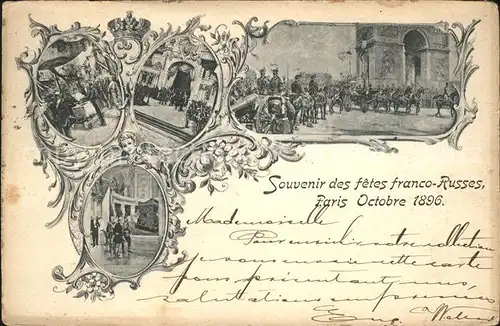 Souvenir des fêtes franco-Russes,
Paris Octobre 1896.
Mademoiselle
Pour enrichir votre collection
je vous envoie cette carte
vous présentant mes
salutations empressées
Eug.